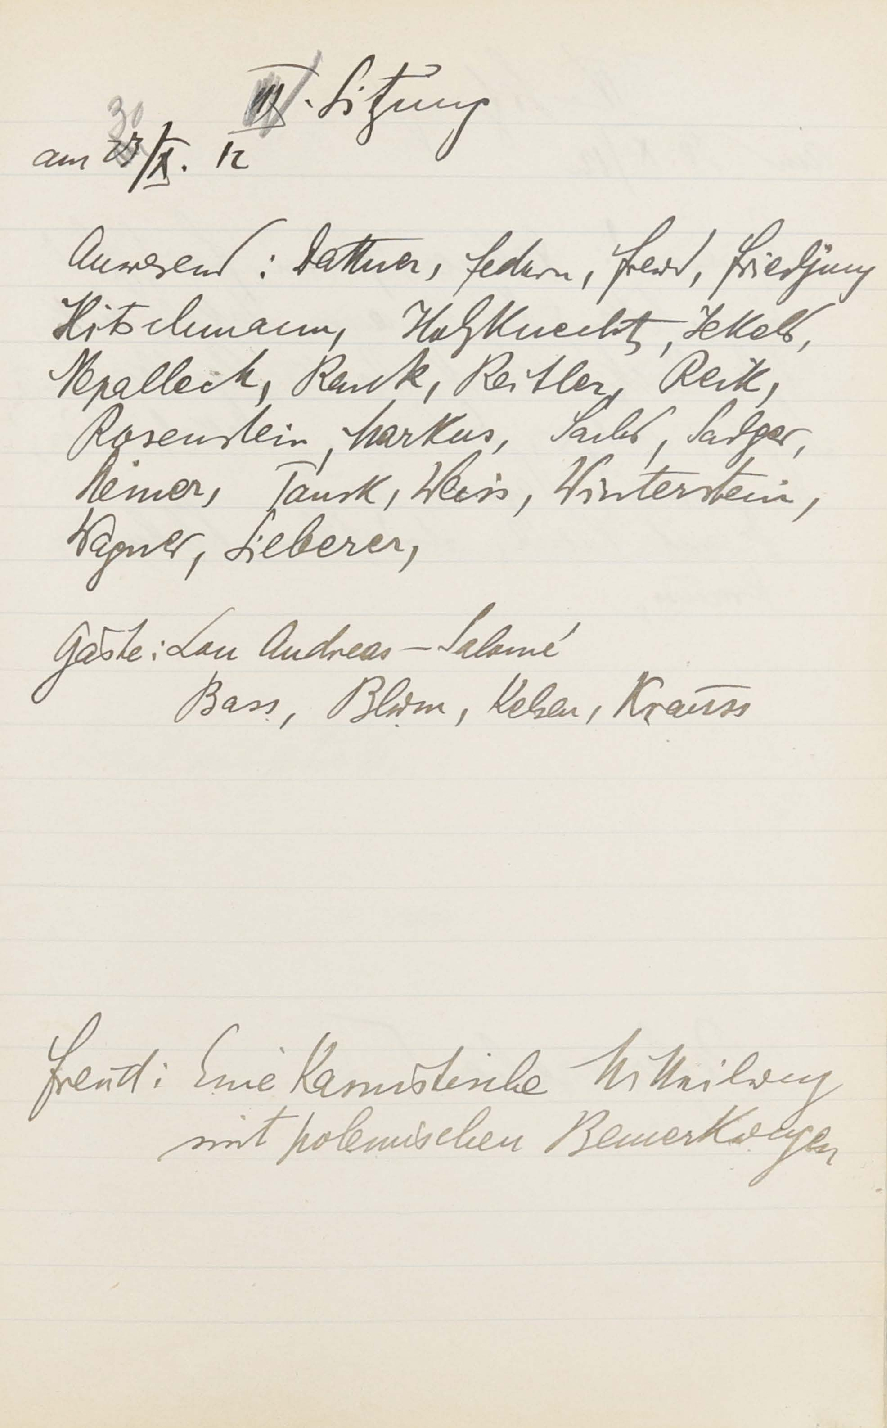 III. Sitzung
30
am 23/X. 12
Anwesend : Dattner, Federn, Freud, Friedjung
Hitschmann, Holzknecht, Jekels,
Nepalleck, Rank, Reitler, Reik,
Rosenstein, Markus, Sachs, Sadger,
Steiner, Tausk, Weiss, Winterstein,
Wagner, Sieberer,
Gäste: Lou Andreas – Salomé
Bass, Blum, Kelsen, Krauss
Freud: Eine Kasuistische Mitteilung
mit polemischen Bemerkungen